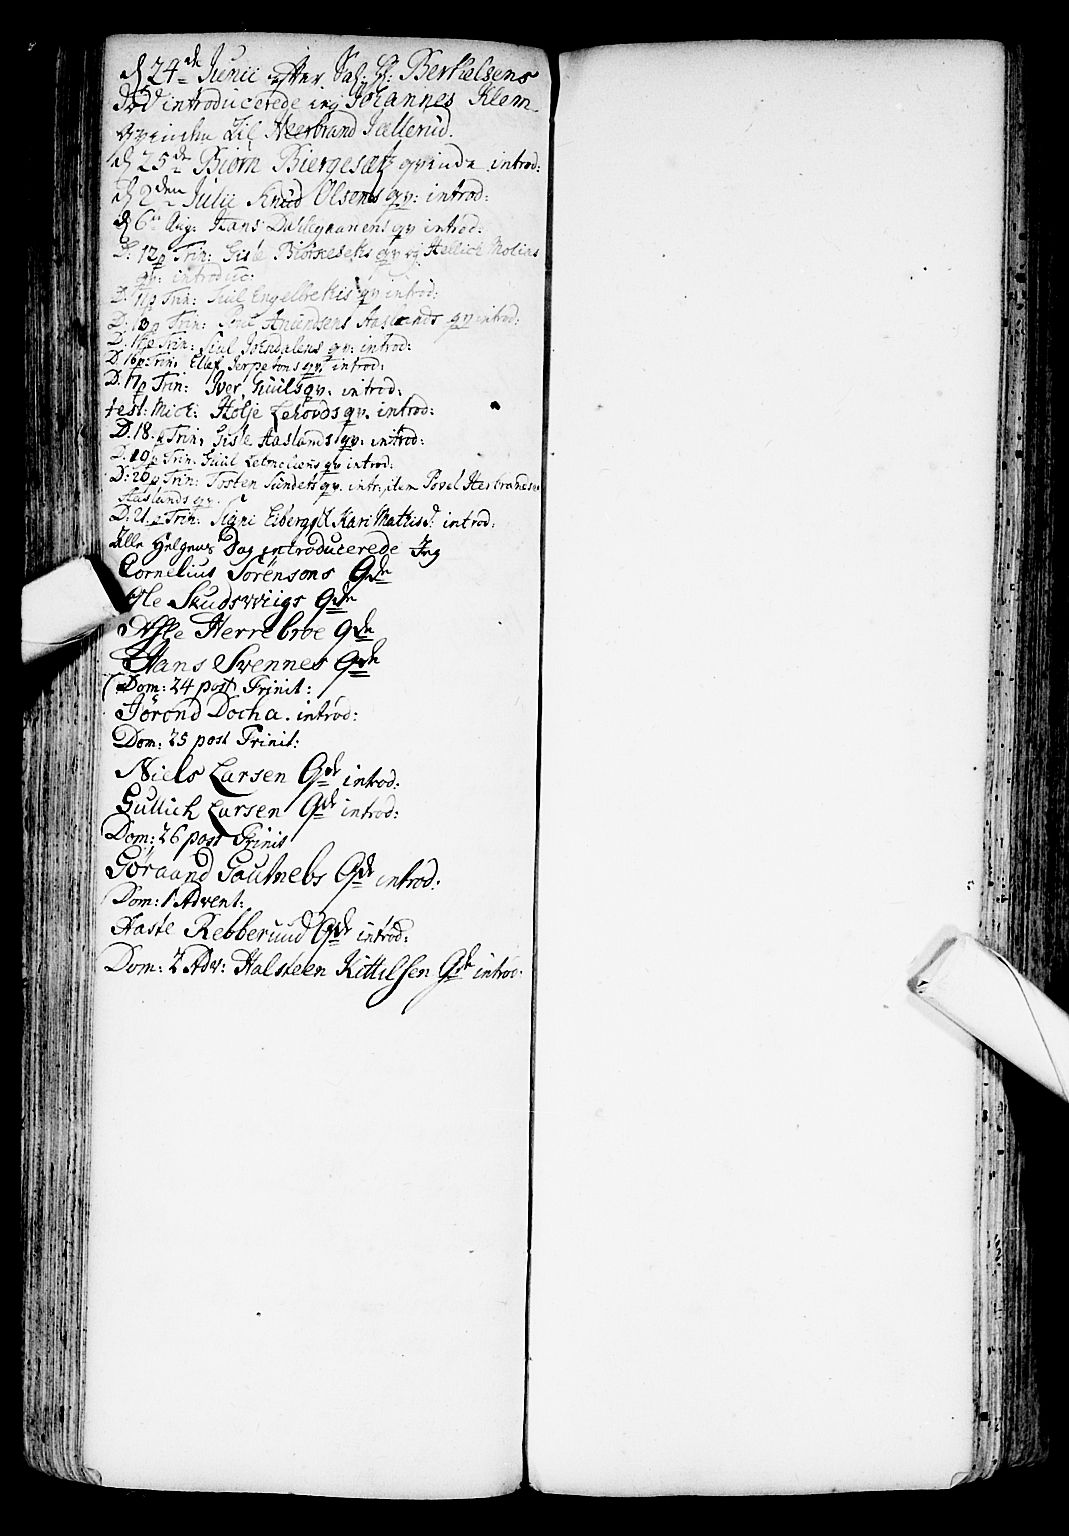 d 24de Junii efter Sal: Hr: Berthelsens
Død introducerede ieg Johannes Klem-
qvinden til Herbrand Jællerud.
d 25de Biørn Biergesæt qvinde introd:
d 2den Julii Knud Olsens qv: introd:
d 6te Aug: Hans qv introd:
D: 12 p Trin: Gisle qv og Hellich Molins
qv: introduc:
D. 11 p Trin: Juul Engelbrekts qv introd:
D: 13 p Trin: Poul Amundsens Aaslands qv introd:
D: 15 p Trin: Juul qv: introd:
D. 16 p Trin: Ellef qv: introd:
D. 17 p Trin: Iver Juuls qv: introd:
fest: Mich: Holje Lehovds qv. introd:
D. 18. p Trin: Gisle Aaslands qv: introd:
D. 19 p Trin: Juul qv introd:
D: 20 p Trin: Tosten Sunders qv. intr: item Povel Herbrandsen
Aaslands qv.
D: 21. p Trin: Signi Eiberg og Kari Mathisd: introd:
Alle Helgens Dag introducerede Jeg
Cornelius Sörensons Qde
Ole Skudsvviigs Qde
Aske Herrebroe Qde
Hans Svennes Qde
Dom: 24 post Trinit:
Jörond Docha. introd:
Dom: 25 post Trinit:
Niels Larsen Qde introd:
Gullich Larsen Qde introd:
Dom: 26 post Trinit
Göraand Gautnebs Qde introd:
Dom: 1 Advent:
Haste Rebberuud Qde introd:
Dom: 2 Adv: Halsteen Kittilsen Qde introd: